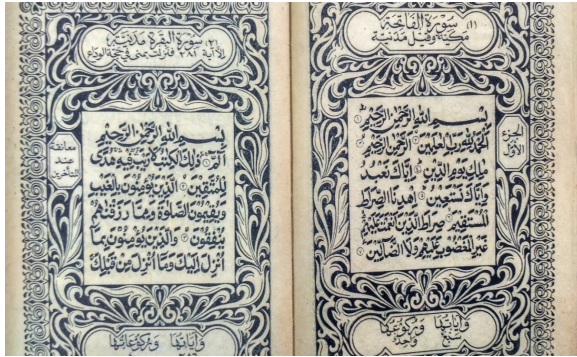 (١) سورة الفاتحة
مكية وقيل مدنية
الجزء
الأول
بسم الله الرحمن الرحيم
الحمد لله رب العلمين الرحمن الرحيم
ملك يوم الدين إياك نعبد
وإياك نستعين اهدنا الصراط
المستقيم صراط الذين أنعمت عليهم
غير المغضوب عليهم ولا الضالين
وآياتها سبع
وركوعها واحد
(٢) سورة البقرة مدنية
إلا آية ٢٨١ فنزلت بمنى في حجة الوداع
معانقة
عند
المتأخرين
بسم الله الرحمن الرحيم
الم ذلك الكتب لا ريب فيه هدى
للمتقين الذين يؤمنون بالغيب
ويقيمون الصلوة ومما رزقنهم
ينفقون والذين يؤمنون بما
أنزل إليك وما أنزل من قبلك
وآياتها
وركوعاتها